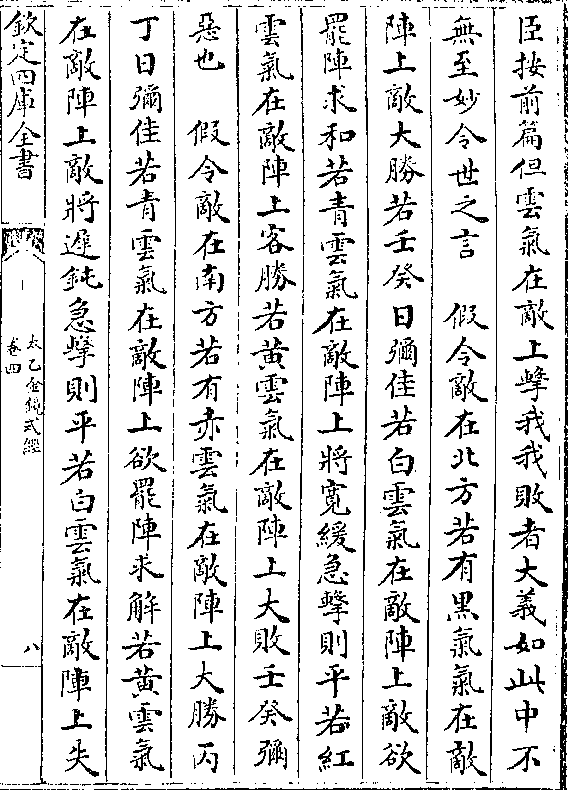 臣按前篇但雲氣在敵上擊我我敗者大義如此中不
無至妙令世之言　假令敵在北方若有黒氣氣在敵
陣上敵大勝若壬癸日彌佳若白雲氣在敵陣上敵欲
罷陣求和若青雲氣在敵陣上將寛緩急擊則平若紅
雲氣在敵陣上客勝若黄雲氣在敵陣上大敗壬癸彌
惡也　假令敵在南方若有赤雲氣在敵陣上大勝丙
丁日彌佳若青雲氣在敵陣上欲罷陣求解若黄雲氣
在敵陣上敵將遲鈍急擊則平若白雲氣在敵陣上失
欽定四庫全書
太乙金鏡式經
卷四
八